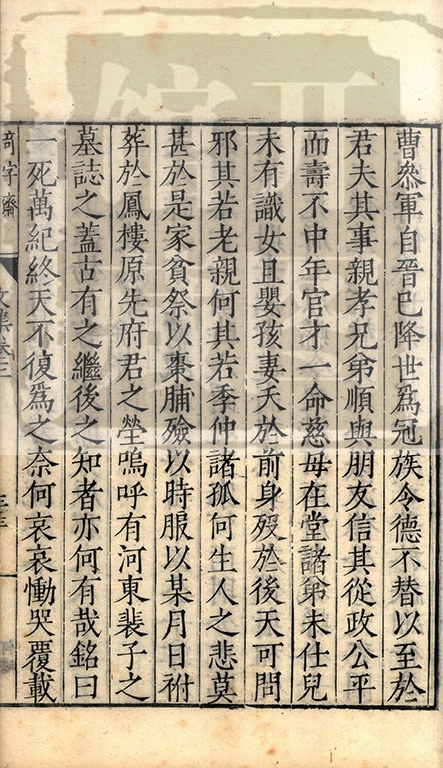 曹叅軍自晉巳降世為冠族令德不替以至於
君夫其事親孝兄弟順與朋友信其從政公平
而壽不中年官才一命慈母在堂諸弟未仕兒
未有識女且嬰孩妻夭於前身歿於後天可問
邪其若老親何其若季仲諸孤何生人之悲莫
甚於是家貧祭以棗脯殮以時服以某月日祔
葬於鳳樓原先府君之塋嗚呼有河東裴子之
墓誌之蓋古有之繼後之知者亦何有哉銘曰
一死萬紀終天不復為之奈何哀哀慟哭覆載
奇字齋
文集卷三